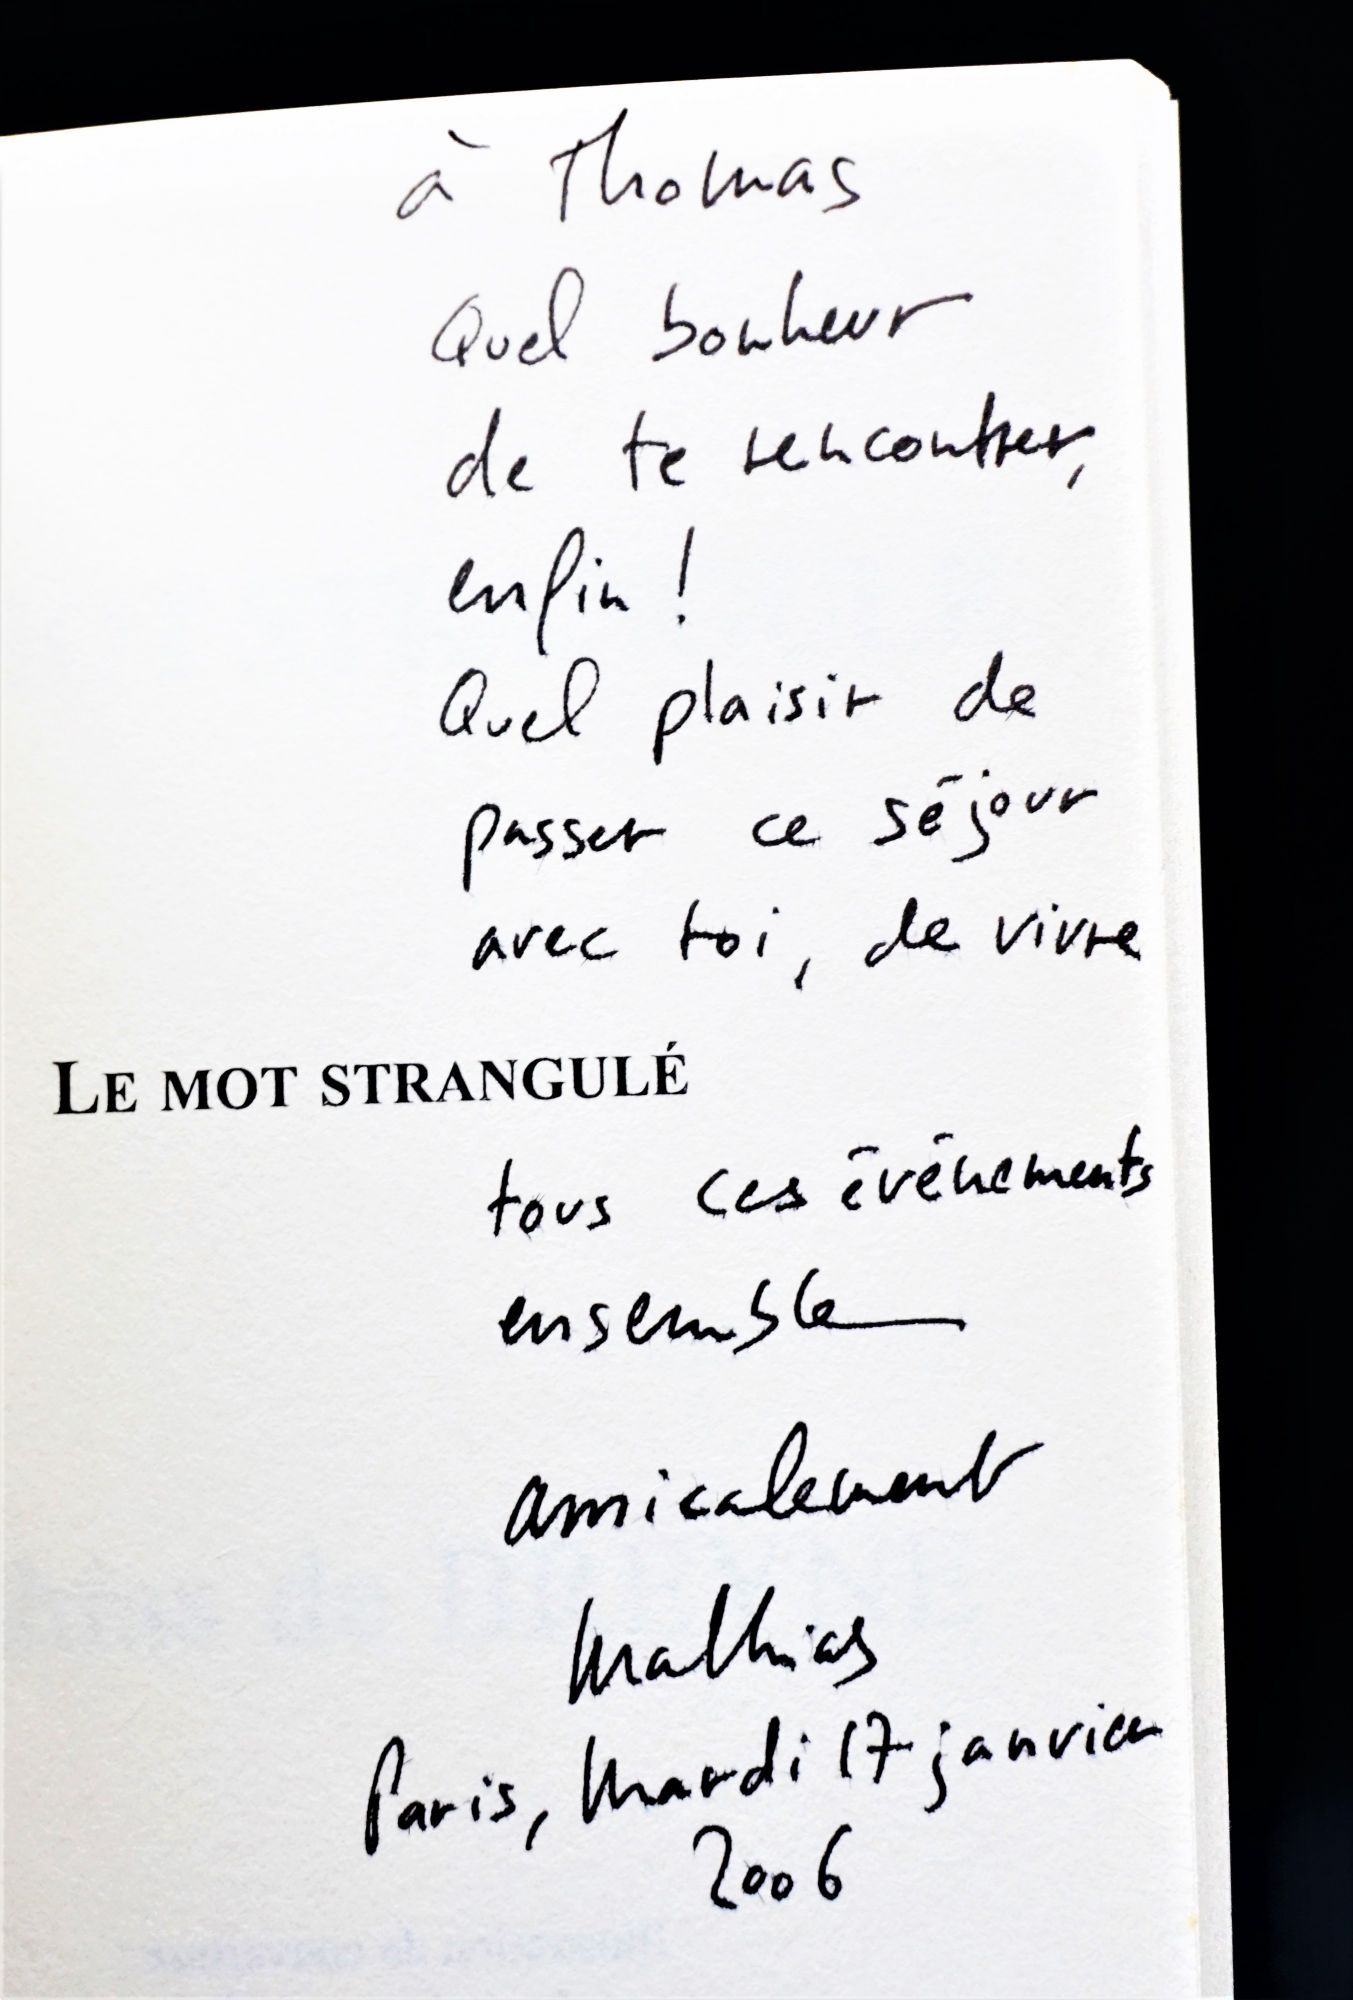 à Thomas
Quel bonheur
de te rencontrer,
enfin !
Quel plaisir de
passer ce séjour
avec toi, de vivre
LE MOT STRANGULÉ
tous ces événements
ensemble
amicalement
Mathias
Paris, Mardi 17 janvier
2006